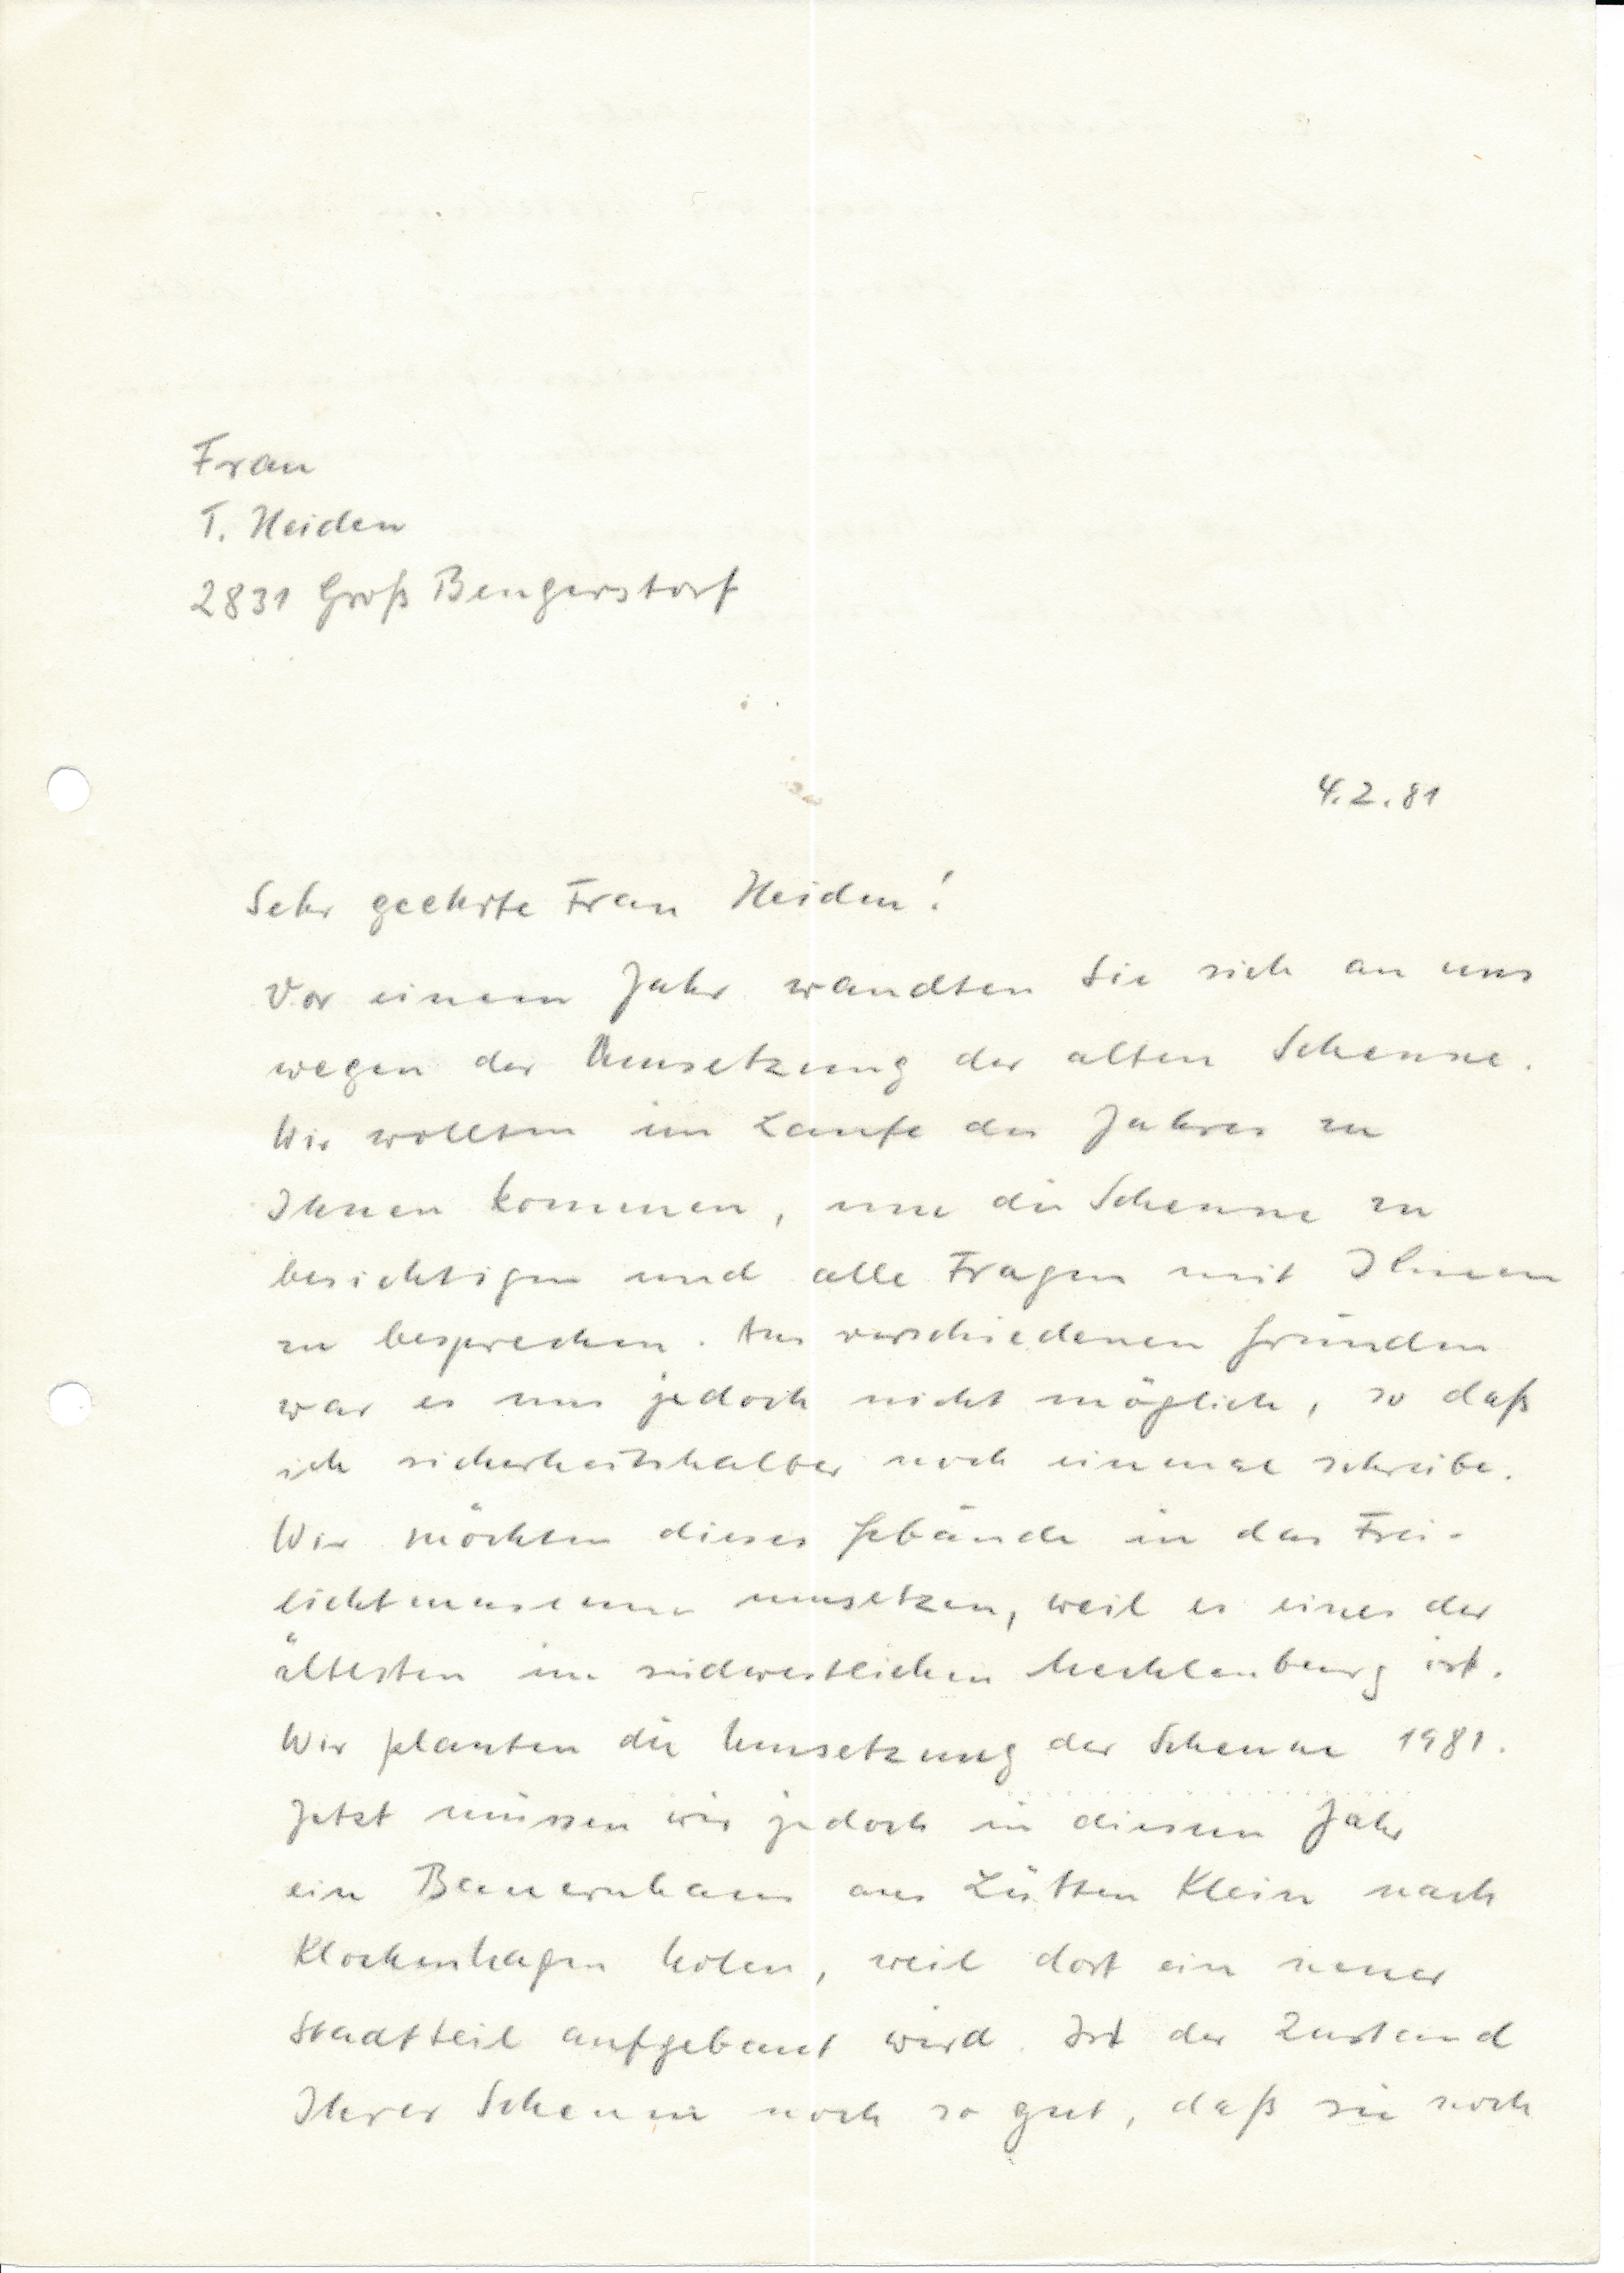 Frau
T. Heiden
2831 Groß Bengerstorf
4.2.81
Sehr geehrte Frau Heiden!
Vor einem Jahr wandten Sie sich an uns
wegen der Umsetzung der alten Scheune.
Wir wollten im Laufe des Jahres zu
Ihnen kommen, um die Scheune zu
besichtigen und alle Fragen mit Ihnen
zu besprechen. Aus verschiedenen Gründen
war es uns jedoch nicht möglich, so daß
ich sicherheitshalber noch einmal schreibe.
Wir möchten dieses Gebäude in das Frei-
lichtmuseum umsetzen, weil es eines der
ältesten im südwestlichen Mecklenburg ist.
Wir planten die Umsetzung der Scheune 1981.
Jetzt müssen wir jedoch in diesem Jahr
ein Bauernhaus aus Lütten Klein nach
Klockenhagen holen, weil dort ein neuer
Stadtteil aufgebaut wird. Ist der Zustand
Ihrer Scheune noch so gut, daß sie noch